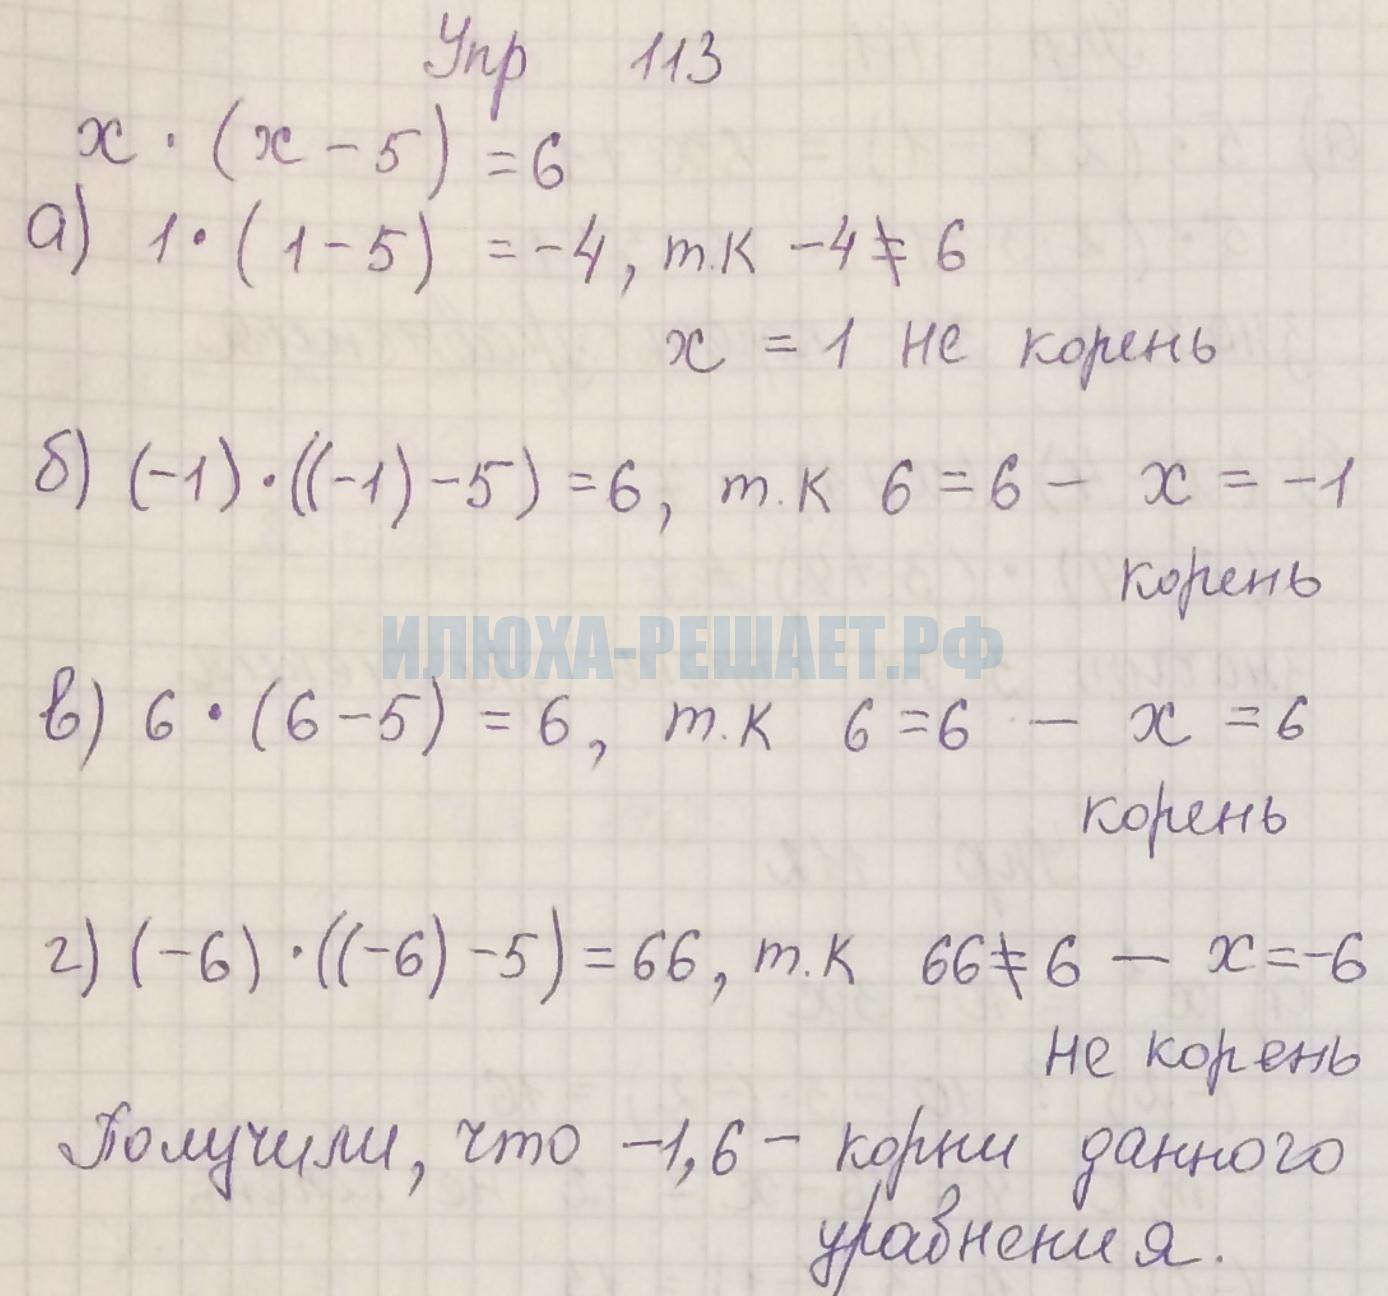 Упр 113
x · (x - 5) = 6
а) 1 · (1 - 5) = -4, т.к -4 ≠ 6
x = 1 не корень
б) (-1) · ((-1) - 5) = 6, т.к 6 = 6 - x = -1
корень
ИЛЮХА-РЕШАЕТ.РФ
в) 6 · (6 - 5) = 6, т.к 6 = 6 - x = 6
корень
г) (-6) · ((-6) - 5) = 66, т.к 66 ≠ 6 — x = -6
не корень
Получили, что -1, 6 - корни данного
уравнения.